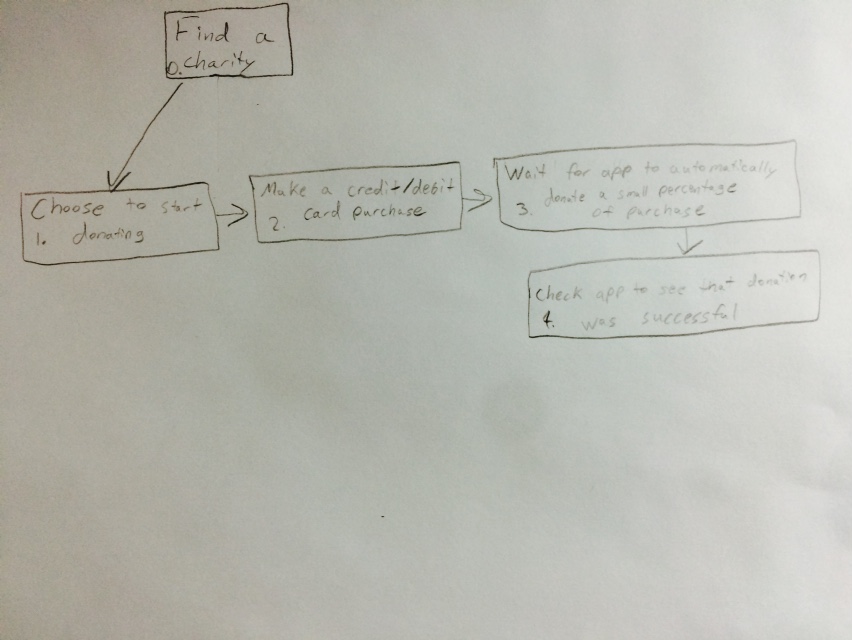 Find a
0. charity
Choose to start
1. donating
Make a credit/debit
2. card purchase
Wait for app to automatically
3. donate a small percentage
of purchase
Check app to see that donation
4. was successful